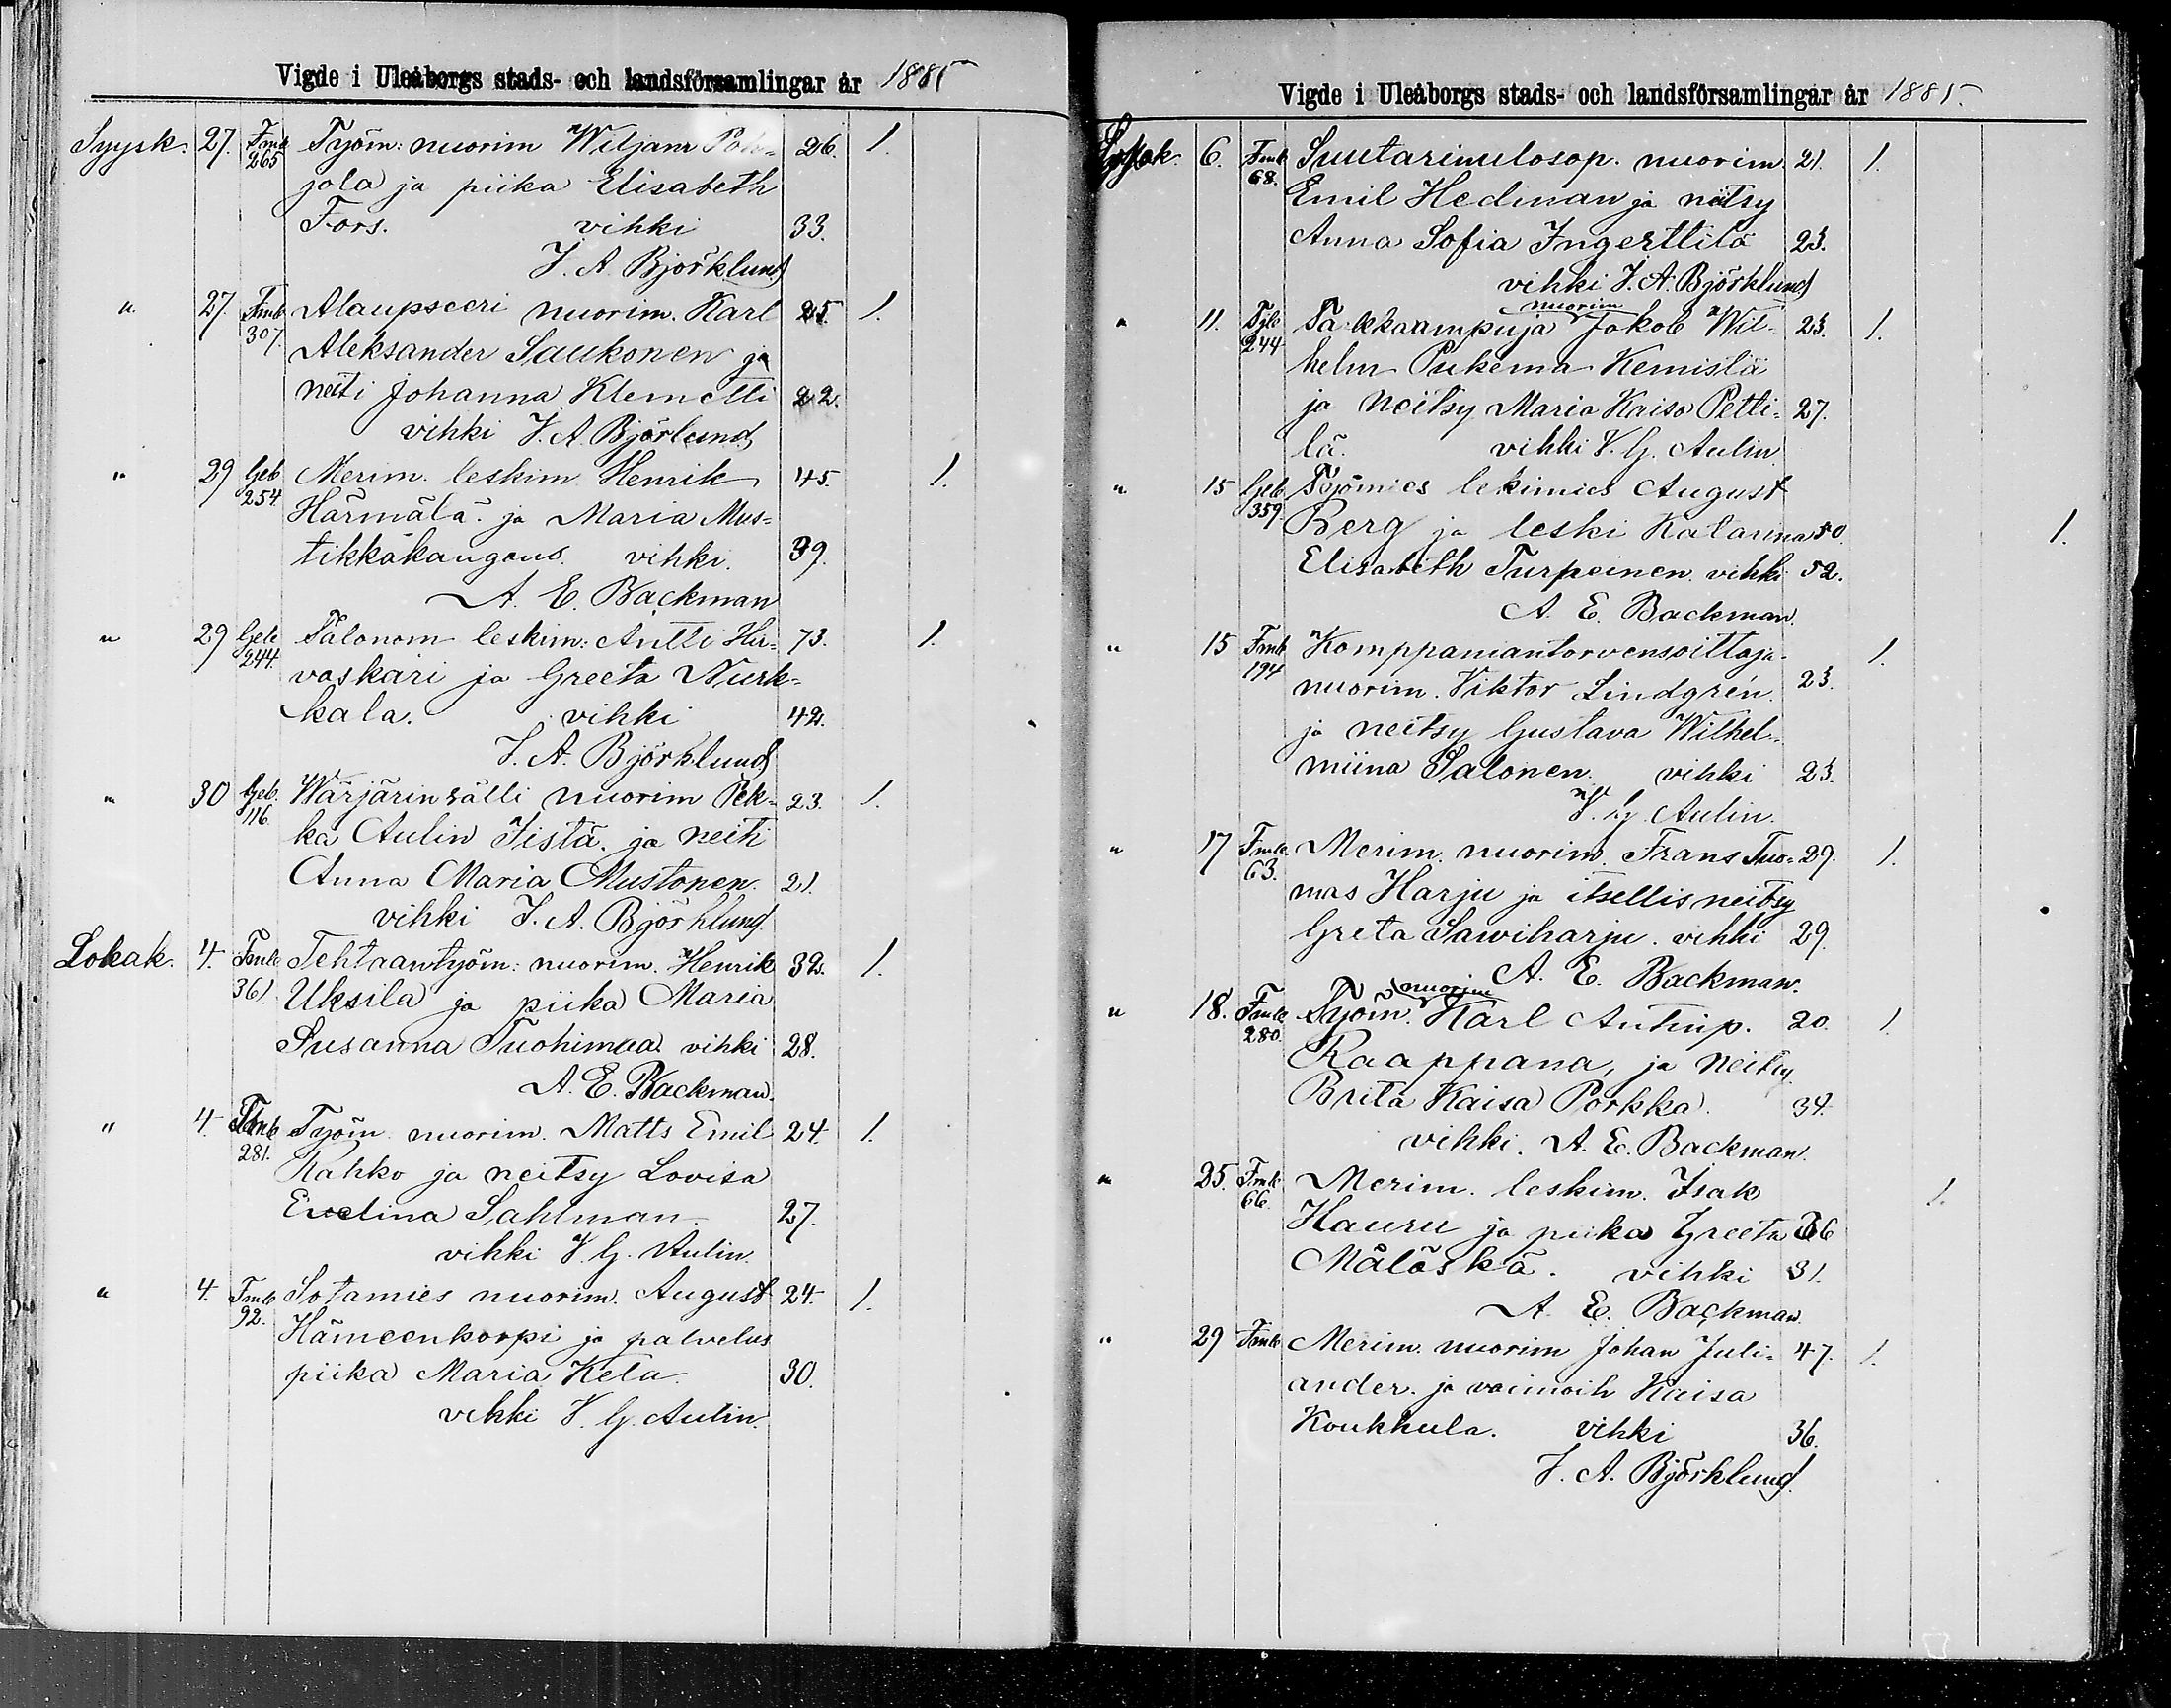 Vigde i Uleåborgs stads- och landsförsamlingar år 1885
Syysk. 27. Fmb 265 Työm: nuorim Wiljam Poh- 26. 1.
jola ja piika Elisabeth
Fors. vihki 33.
J. A. Björklund
" 27. Fmb 307. Alaupseeri nuorim. Karl 25. 1.
Aleksander Saukonen ja
neiti Johanna Klemetti 22.
vihki J. A. Björlund
" 29 Geb 254 Merim. leskim Henrik 45. 1.
Härmälä. ja Maria Mus-
tikkakangas. vihki. 39.
A. E. Backman
" 29 Geb 244. Talonom leskim: Antti Hir- 73. 1.
vaskari ja Greeta Nurk-
kala. vihki 42.
J. A. Björklund
" 30 Geb. 116. Wärjärin sälli nuorim Pek- 23. 1.
ka Aulin Iistä. ja neiti
Anna Maria Mustonen. 21.
vihki J. A. Björklund.
Lokak. 4. Fmb 361. Tehtaantyöm: nuorim. Henrik 32. 1.
Uksila ja piika Maria
Susanna Tuohimaa. vihki 28.
A. E. Backman.
" 4. Fmb 281. Työm nuorim. Matts Emil 24. 1.
Rahko ja neitsy Lovisa
Evelina Sahlman. 27.
vihki V. G. Aulin.
" 4. Fmb 92. Sotamies nuorim. August 24. 1.
Hämeenkorpi ja palvelus
piika Maria Kela. 30.
vihki V. G. Aulin.
Vigde i Uleåborgs stads- och landsförsamlingar år 1885.
6. Fmb 68. Suutarinulosop. nuorim. 21. 1.
Emil Hedman ja neitsy
Anna Sofia Ingerttilä 23.
vihki J. A. Björklund
nuorim
" 11. 244 Takkaampuja Jakob Wil- 23. 1.
helm Pukema Kemistä
ja neitsy Maria Kaisa Petti- 27.
lä. vihki V. G. Aulin.
" 15 Geb 359. Työmies lekimies August
Berg ja leski Katarina 50. 1.
Elisabeth Turpeinen. vihki 52.
A. E. Backman.
" 15 Fmb 194 Komppaniantorvensoittaja 1.
nuorim. Viktor Lindgrén. 23.
ja neitsy Gustava Wilhel-
miina Salonen. vihki 23.
V. G. Aulin.
" 17 Fmb. 63. Merim. nuorim. Frans Tuo- 29. 1.
mas Harju ja itsellis neitsy
Greta Sawiharju. vihki 29.
A. E. Backman.
nuorim
" 18. Fmb. 280. Työm. Karl Antinp. 20. 1.
Raappana, ja neitsy
Brita Kaisa Porkka. 34.
vihki. A. E. Backman.
" 25. Fmb 66. Merim. leskim. Isak 1.
Hauru ja piika Greeta 36
Mäläskä. vihki 31.
A. E. Backman.
" 29 Fmb Merim. nuorim Johan Juli- 47. 1.
ander. ja vaimoih Kaisa
Koukkula. vihki 36.
J. A. Björklund.